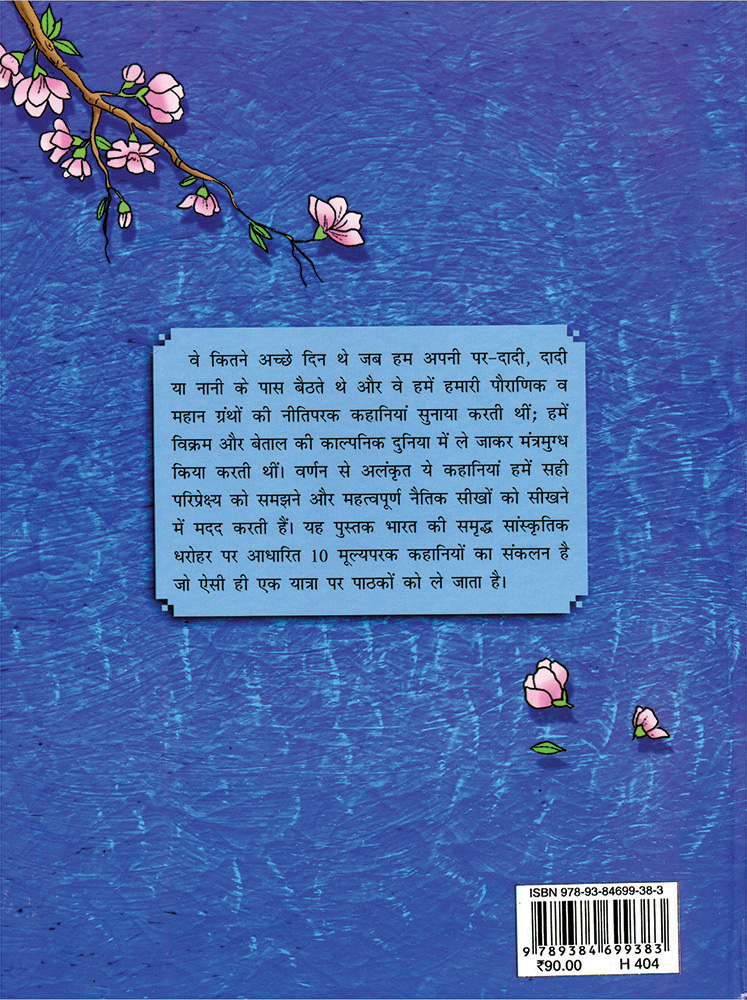 वे कितने अच्छे दिन थे जब हम अपनी पर-दादी, दादी
या नानी के पास बैठते थे और वे हमें हमारी पौराणिक व
महान ग्रंथों की नीतिपरक कहानियां सुनाया करती थीं; हमें
विक्रम और बेताल की काल्पनिक दुनिया में ले जाकर मंत्रमुग्ध
किया करती थीं। वर्णन से अलंकृत ये कहानियां हमें सही
परिप्रेक्ष्य को समझने और महत्वपूर्ण नैतिक सीखों को सीखने
में मदद करती हैं। यह पुस्तक भारत की समृद्ध सांस्कृतिक
धरोहर पर आधारित 10 मूल्यपरक कहानियों का संकलन है
जो ऐसी ही एक यात्रा पर पाठकों को ले जाता है।
ISBN 978-93-84699-38-3
9 789384 699383
₹90.00 H 404